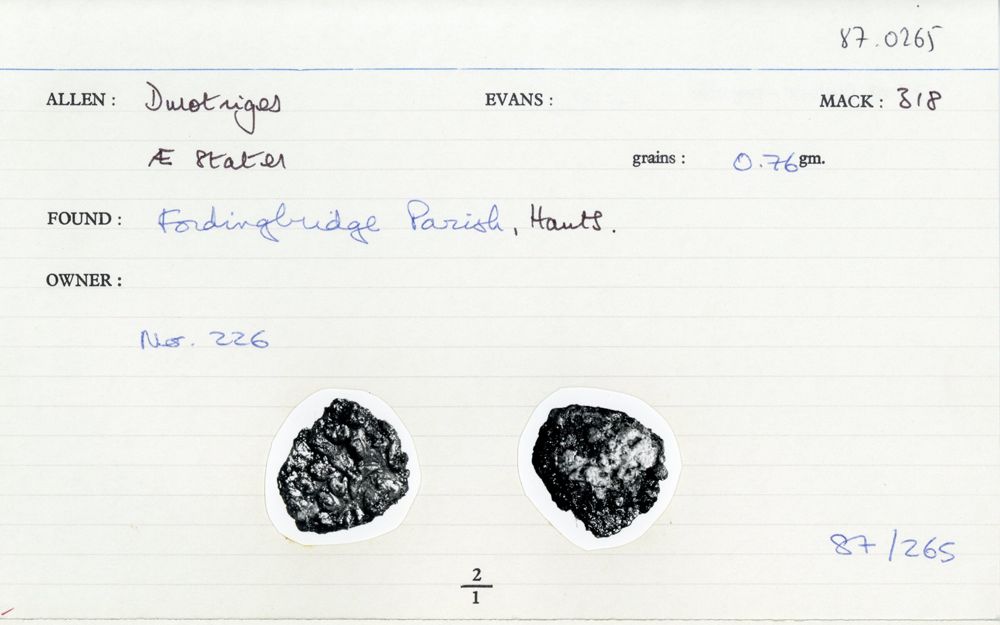 87.0265
ALLEN : Durotriges EVANS : MACK : 318
Æ Stater grains : 0.76 gm.
FOUND : Fordingbridge Parish, Hants.
OWNER :
No. 226
87/265
2
1